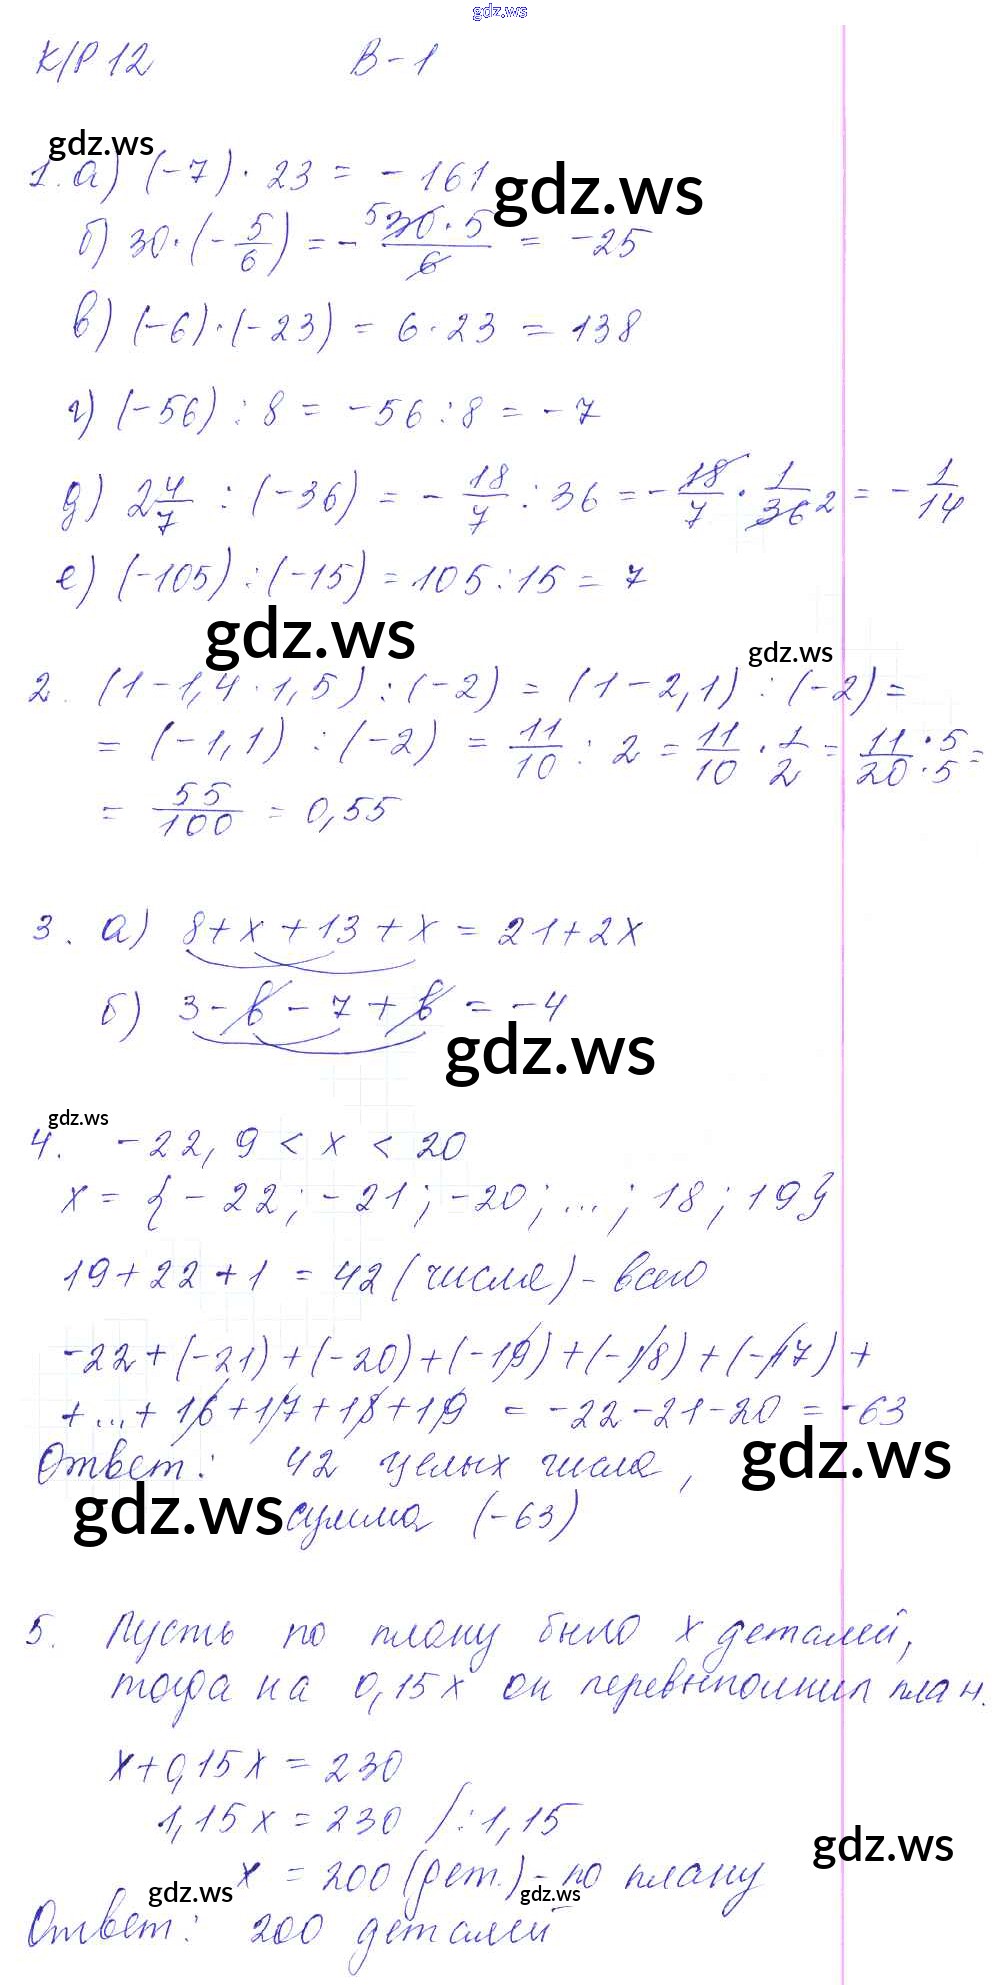 gdz.ws
К/Р 12 В-1
gdz.ws
1. а) (-7) · 23 = - 161
gdz.ws
б) 30 · (- 5/6) = - 5 30 · 5 / 6 = -25
в) (-6) · (-23) = 6 · 23 = 138
г) (-56) : 8 = -56 : 8 = -7
д) 2 4/7 : (-36) = - 18/7 : 36 = - 18/7 · 1/36 2 = - 1/14
е) (-105) : (-15) = 105 : 15 = 7
gdz.ws
gdz.ws
2. (1 - 1,4 · 1,5) : (-2) = (1 - 2,1) : (-2) =
= (-1,1) : (-2) = 11/10 : 2 = 11/10 · 1/2 = 11 · 5 / 20 · 5 =
= 55/100 = 0,55
3. а) 8 + x + 13 + x = 21 + 2x
б) 3 - в - 7 + в = -4
gdz.ws
gdz.ws
4. -22,9 < x < 20
x = {-22; -21; -20; ...; 18; 19}
19 + 22 + 1 = 42 (числа) - всего
-22 + (-21) + (-20) + (-19) + (-18) + (-17) +
+ ... + 16 + 17 + 18 + 19 = -22 - 21 - 20 = -63
gdz.ws
Ответ: 42 целых числа,
gdz.ws
сумма (-63)
5. Пусть по плану было x деталей,
тогда на 0,15x он перевыполнил план.
x + 0,15x = 230
1,15x = 230 /: 1,15
gdz.ws
x = 200 (дет.) - по плану
gdz.ws
gdz.ws
Ответ: 200 деталей